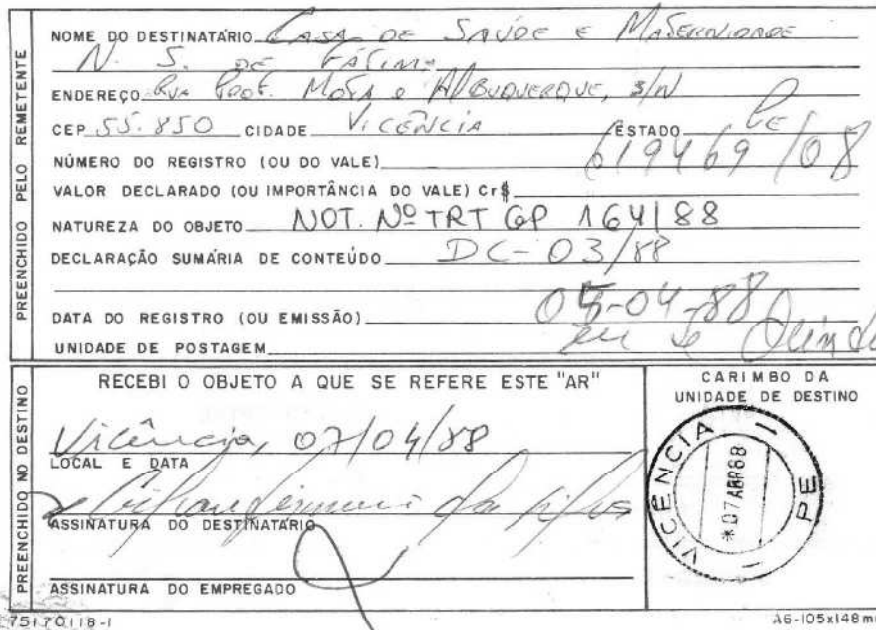 PREENCHIDO PELO REMETENTE
NOME DO DESTINATÁRIO CASA DE SAÚDE E MATERNIDADE
N. S. DE FÁTIMA
ENDEREÇO RUA PROF. MOTA e ALBUQUERQUE, S/N
CEP 55.850 CIDADE VICÊNCIA ESTADO PE
NÚMERO DO REGISTRO (OU DO VALE) 619469/08
VALOR DECLARADO (OU IMPORTÂNCIA DO VALE) Cr$
NATUREZA DO OBJETO NOT. Nº TRT GP 164/88
DECLARAÇÃO SUMÁRIA DE CONTEÚDO DC-03/88
DATA DO REGISTRO (OU EMISSÃO) 05-04-88
UNIDADE DE POSTAGEM
PREENCHIDO NO DESTINO
RECEBI O OBJETO A QUE SE REFERE ESTE "AR"
Vicência, 07/04/88
LOCAL E DATA
da Silva
ASSINATURA DO DESTINATÁRIO
ASSINATURA DO EMPREGADO
CARIMBO DA
UNIDADE DE DESTINO
VICÊNCIA
*07ABR88
PE
75170118-1
A6-105x148m